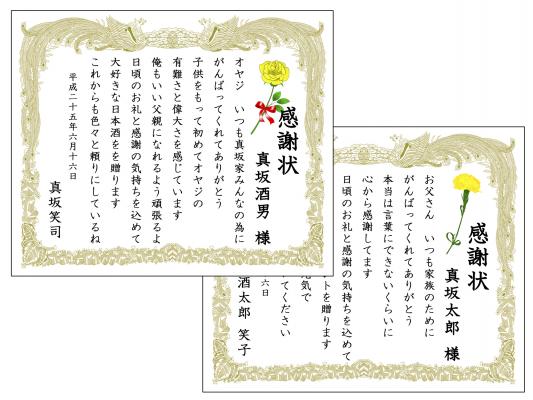 感謝状
真坂酒男 様
オヤジ いつも真坂家みんなの為に
がんばってくれてありがとう
子供をもって初めてオヤジの
有難さと偉大さを感じています
俺もいい父親になれるよう頑張るよ
日頃のお礼と感謝の気持ちを込めて
大好きな日本酒をを贈ります
これからも色々と頼りにしているね
平成二十五年六月十六日
真坂笑司
感謝状
真坂太郎 様
お父さん いつも家族のために
がんばってくれてありがとう
本当は言葉にできないくらいに
心から感謝してます
日頃のお礼と感謝の気持ちを込めて
トを贈ります
元気で
てください
六日
酒太郎 笑子